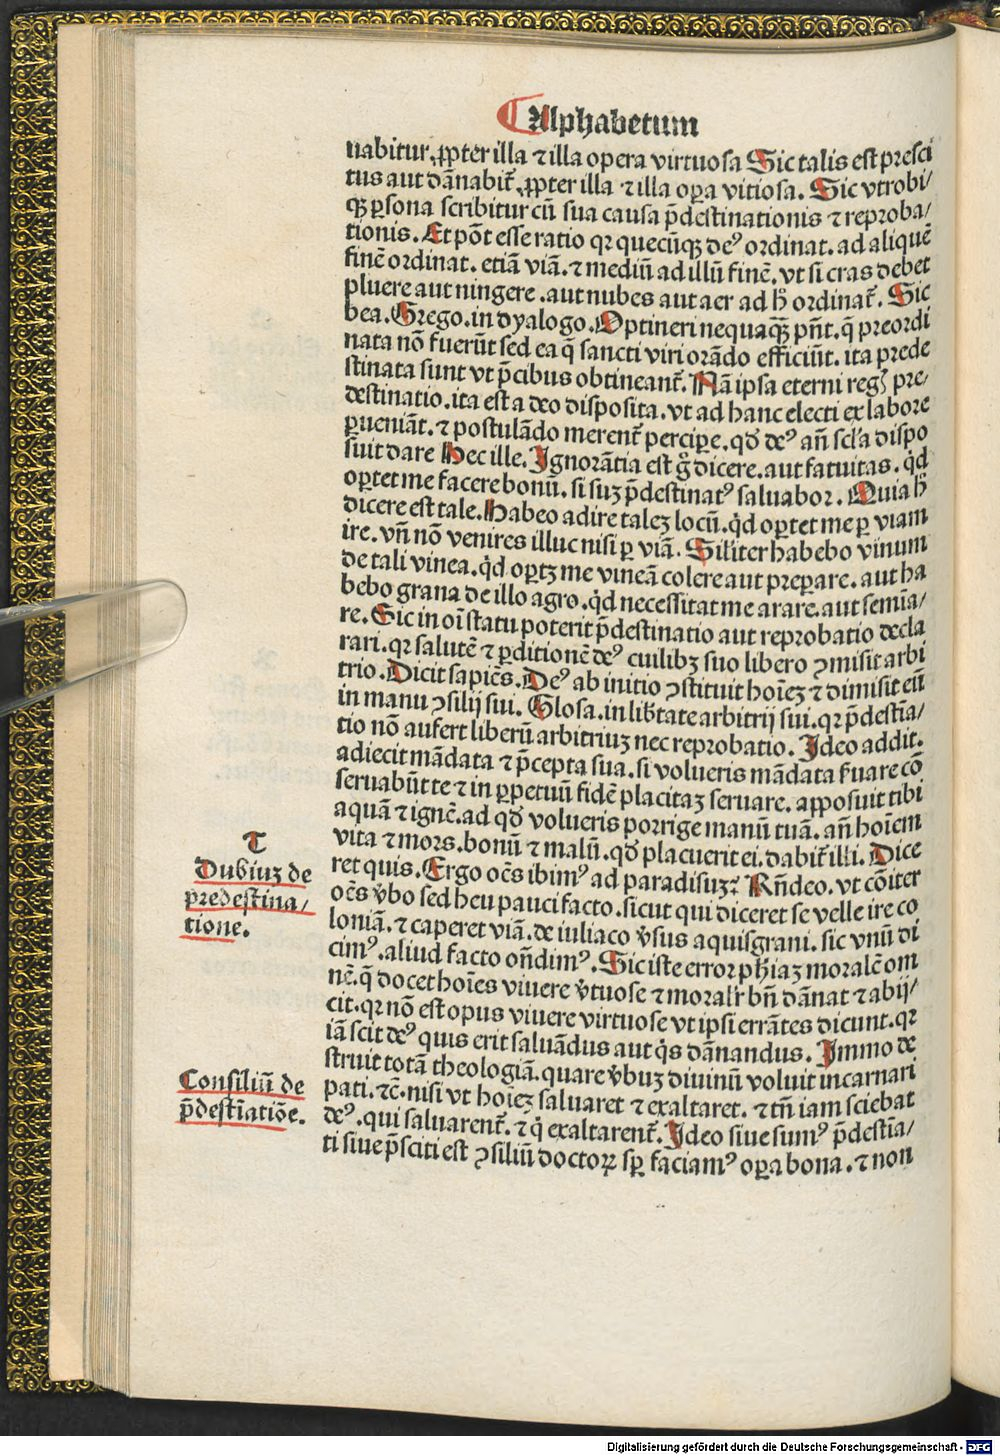 Alphabetum
uabitur ꝓpter illa ⁊ illa opera virtuosa Sic talis est presci
tus aut dānabit᷑ ꝓpter illa ⁊ illa oꝑa vitiosa. Sic vtrobi/
qꝫ ꝑsona scribitur cū sua causa p̄destinationis ⁊ reproba/
tionis. Et pōt esse ratio qꝛ quecūqꝫ deꝰ ordinat. ad aliquē
finē ordinat. etiā viā. ⁊ mediū ad illū finē. vt si cras debet
pluere aut ningere. aut nubes aut aer ad h̄ ordinat᷑. Sic
bea. Grego. in dyalogo. Optineri nequaqꝫ pn̄t. q̄ preordi
nata nō fuerūt sed ea q̄ sancti viri orādo efficiūt. ita prede
stinata sunt vt p̄cibus obtineant᷑. Nā ipsa eterni reg̃ pre/
destinatio. ita est a deo disposita. vt ad hanc electi ex labore
ꝑueniāt. ⁊ postulādo merent᷑ perciꝑe. qd̄ deꝰ an̄ scl̄a dispo
suit dare Hec ille. Ignorātia est g̊ dicere. aut fatuitas. q̇d
oꝑtet me facere bonū. si suꝫ p̄destinatꝰ saluabor. Quia h̄
dicere est tale. Habeo adire taleꝫ locū. q̇d oꝑtet me ꝑ viam
ire. vn̄ nō venires illuc nisi ꝑ viā. Sil̄iter habebo vinum
de tali vinea. q̇d oꝑtꝫ me vineā colere aut preꝑare. aut ha
bebo grana de illo agro. q̇d necessitat me arare. aut semīa/
re. Sic in oī statu poterit p̄destinatio aut reprobatio decla
rari. qꝛ salutē ⁊ ꝑditionē deꝰ cuilibꝫ suo libero ꝯmisit arbi
trio. Dicit sapiēs. Deꝰ ab initio ꝯstituit hoīeꝫ ⁊ dimisit eū
in manu ꝯsilij sui. Glosa. in lib̄tate arbitrij sui. qꝛ p̄destīa/
tio nō aufert liberū arbitriuꝫ nec reprobatio. Ideo addit.
adiecit mādata ⁊ p̄cepta sua. si volueris mādata ẜuare cō
seruabūt te ⁊ in ꝑpetuū fidē placitaꝫ seruare. apposuit tibi
aquā ⁊ ignē. ad qd̄ volueris porrige manū tuā. an̄ hoīem
vita ⁊ mors. bonū ⁊ malū. qd̄ placuerit ei. dabit᷑ illi. Dice
ret quis. Ergo oēs ibimꝰ ad paradisuꝫ? Rn̄deo. vt cōiter
oēs v̄bo sed heu pauci facto. sicut qui diceret se velle ire co
loniā. ⁊ caperet viā. de iuliaco v̄sus aquisgrani. sic vnū di
cimꝰ. aliud facto on̄dimꝰ. Sic iste error ph̄iaꝫ moralē om
nē. q̄ docet hoīes viuere v̄tuose ⁊ moralr̄ bn̄ dānat ⁊ abij/
cit. qꝛ nō est opus viuere virtuose vt ipsi errātes dicunt. qꝛ
iā scit deꝰ quis erit saluādus aut q̇s dānandus. Immo de
struit totā theologiā. quare v̄buꝫ diuinū voluit incarnari
pati. ⁊c̄. nisi vt hoīeꝫ saluaret ⁊ exaltaret. ⁊ tn̄ iam sciebat
deꝰ. qui saluarent᷑. ⁊ q̇ exaltarent᷑. Ideo siue sumꝰ p̄destīa/
ti siue p̄sciti est ꝯsiliū doctoꝝ sꝑ faciamꝰ oꝑa bona. ⁊ non
T
Dubiuꝫ de
predestina/
tione.
Consiliū de
p̄destīatiōe.
Digitalisierung gefördert durch die Deutsche Forschungsgemeinschaft - DFG